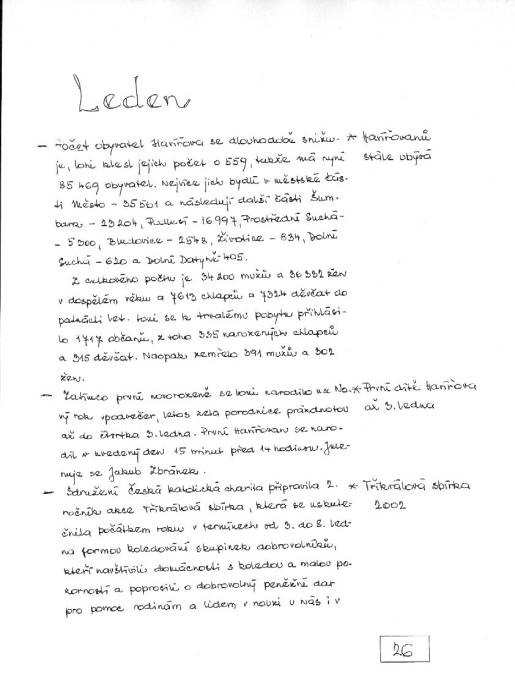 Leden
– Počet obyvatel Havířova se dlouhodobě snižu- * Havířovanů
je, loni klesl jejich počet o 559, takže má nyní stále ubývá
85 469 obyvatel. Nejvíce jich bydlí v městské čás-
ti Město – 35 561 a následují další části Šum-
bark – 23 204, Podlesí – 16 997, Prostřední Suchá
– 5 300, Bludovice – 2548, Životice – 834, Dolní
Suchá – 620 a Dolní Datyně 405.
Z celkového počtu je 34 200 mužů a 36 332 žen
v dospělém věku a 7613 chlapců a 7324 děvčat do
patnácti let. Loni se k trvalému pobytu přihlási-
lo 1717 občanů, z toho 335 narozených chlapců
a 315 děvčat. Naopak zemřelo 391 mužů a 302
žen.
– Zatímco první novorozeně se loni narodilo na No- * První dítě Havířova
vý rok v podvečer, letos zela porodnice prázdnotou až 3. ledna
až do čtvrtka 3. ledna. První Havířovan se naro-
dil v uvedený den 15 minut před 14 hodinou. Jme-
nuje se Jakub Zbránek.
– Sdružení Česká katolická charita připravila 2. * Tříkrálová sbírka
ročník akce Tříkrálová sbírka, která se uskute- 2002
čnila počátkem roku v termínech od 3. do 8. led-
na formou koledování skupinek dobrovolníků,
kteří navštívili domácnosti s koledou a malou po-
zorností a poprosili o dobrovolný peněžní dar
pro pomoc rodinám a lidem v nouzi u nás i v
26